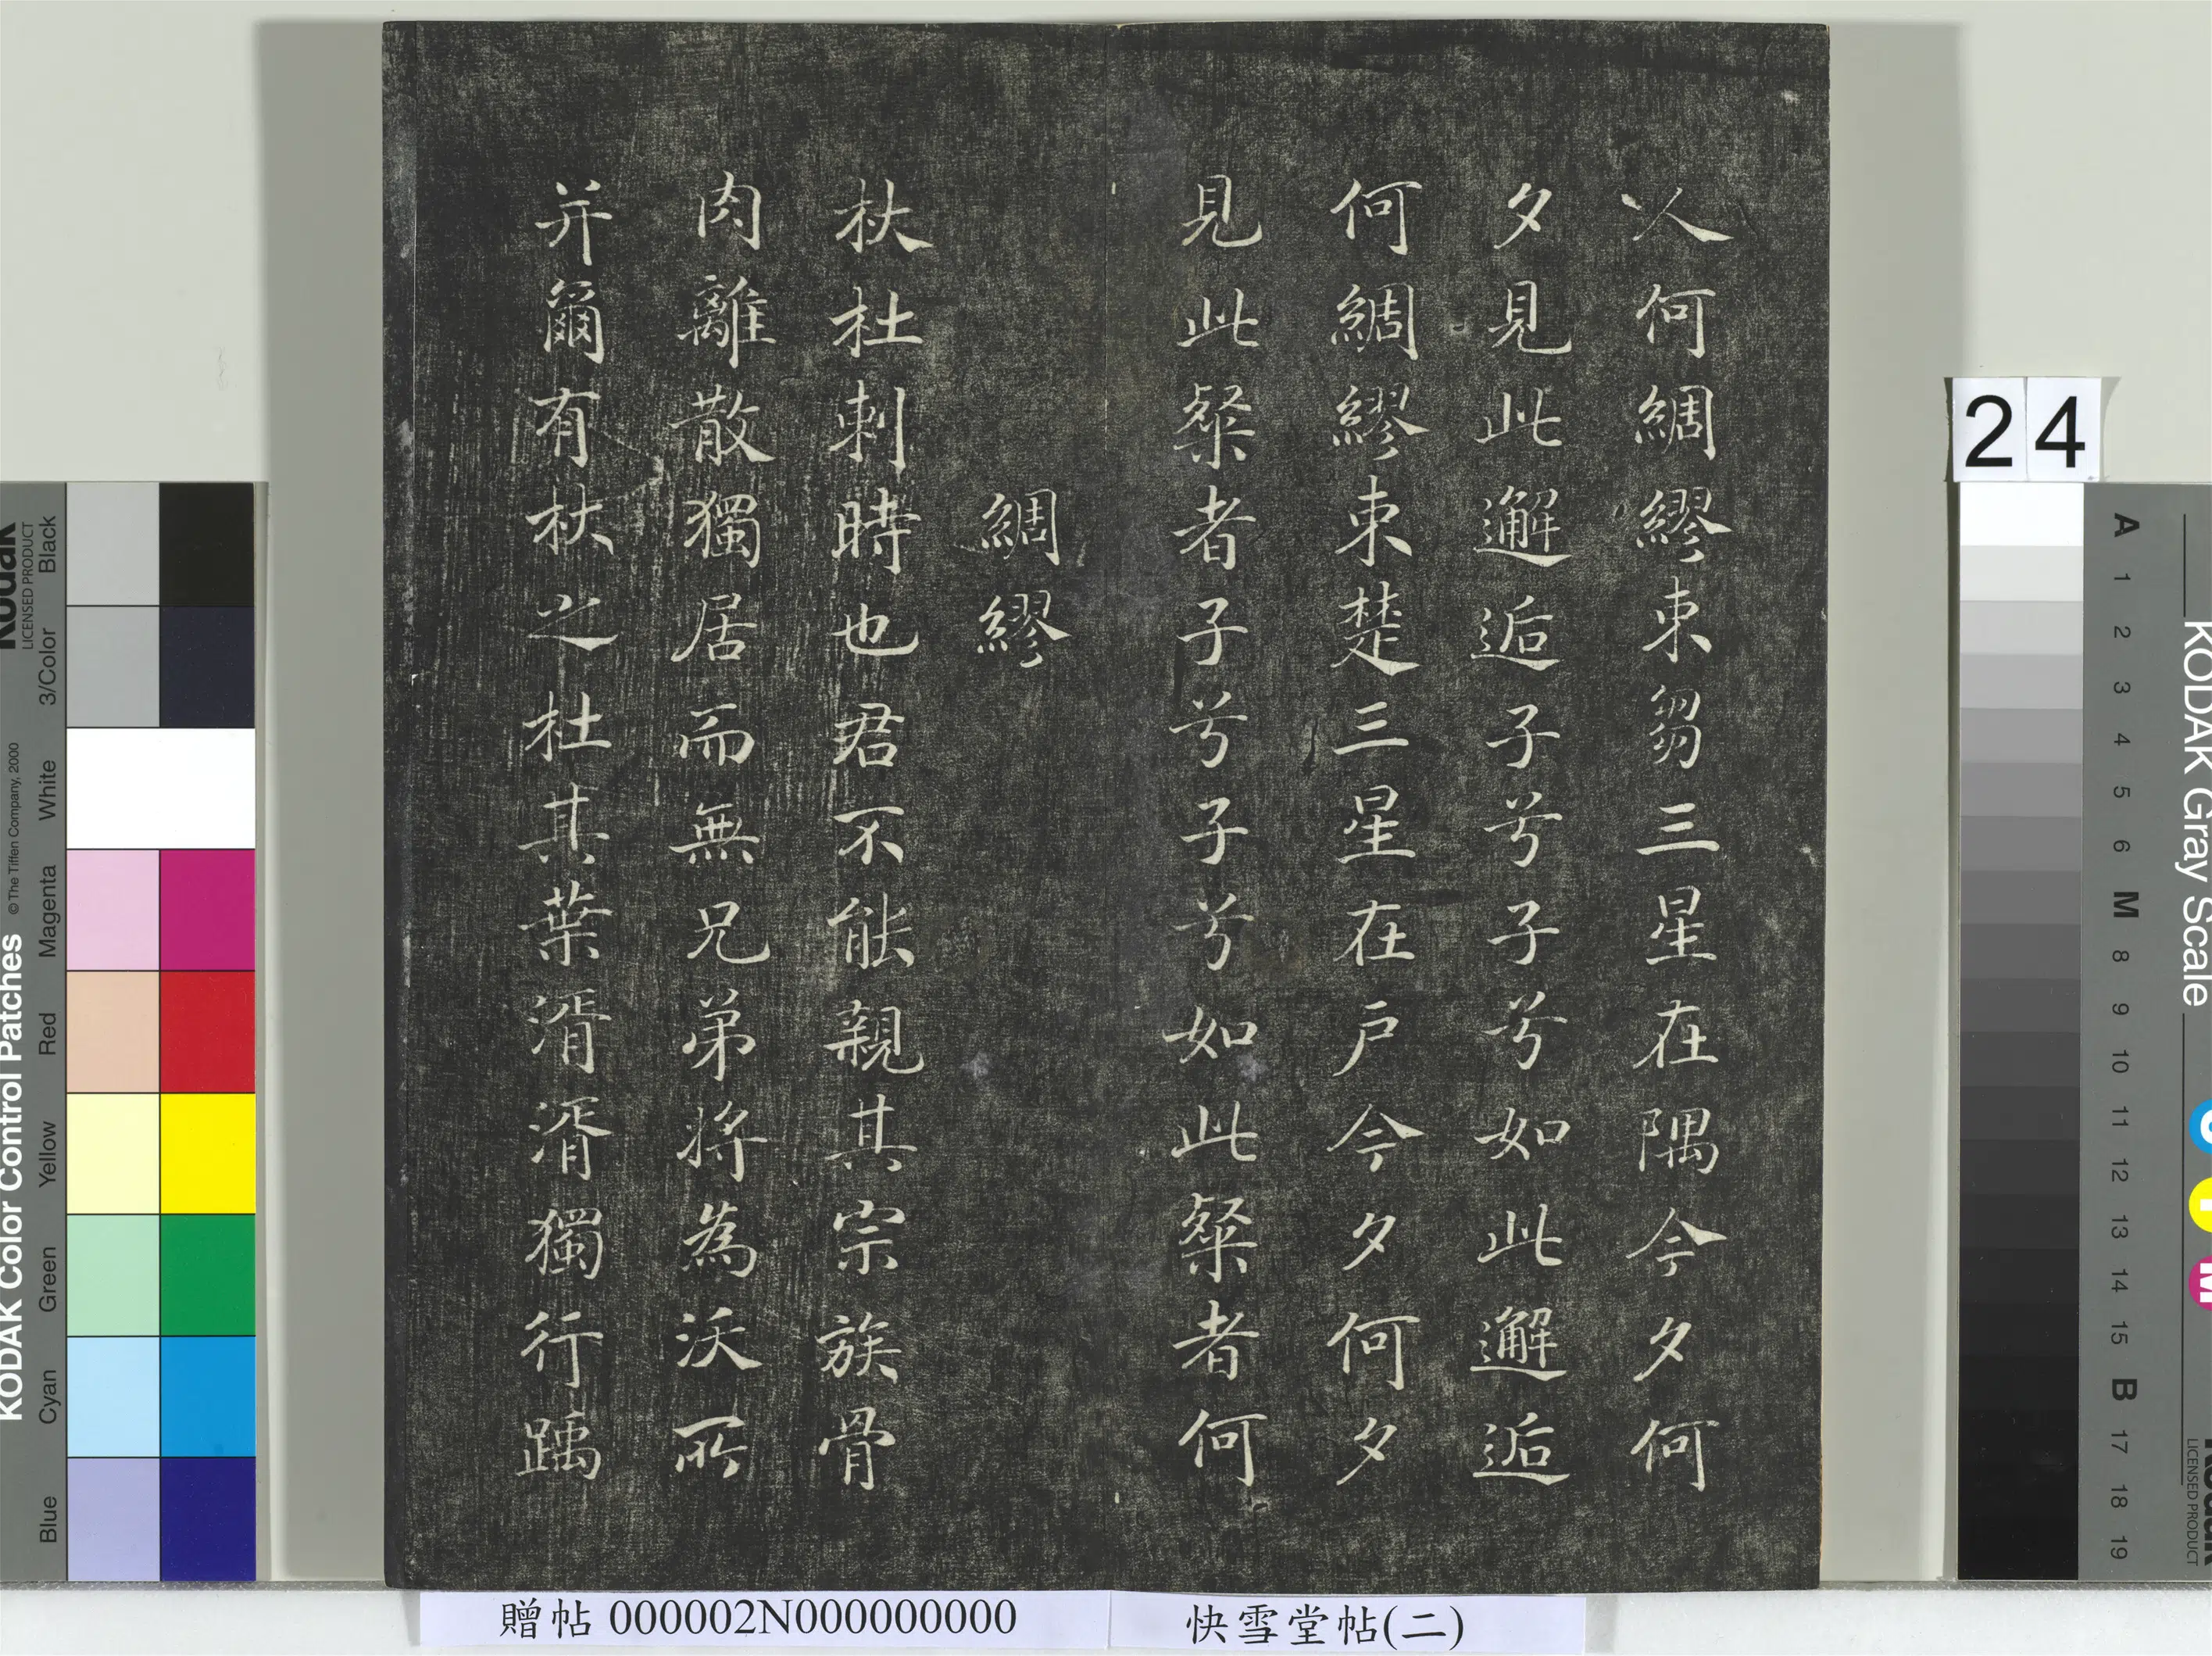 人何綢繆束芻三星在隅今夕何
夕見此邂逅子兮子兮如此邂逅
何綢繆束楚三星在戶今夕何夕
見此粲者子兮子兮如此粲者何
綢繆
杕杜刺時也君不能親其宗族骨
肉離散獨居而無兄弟將為沃所
并爾有杕之杜其葉湑湑獨行踽
24
贈帖 000002N000000000
快雪堂帖(二)
KODAK Color Control Patches
© The Tiffen Company, 2000
Kodak
LICENSED PRODUCT
Black
3/Color
White
Magenta
Red
Yellow
Green
Cyan
Blue
KODAK Gray Scale
A 1 2 3 4 5 6 M 8 9 10 11 12 13 14 15 B 17 18 19
C
Y
M
Kodak
LICENSED PRODUCT